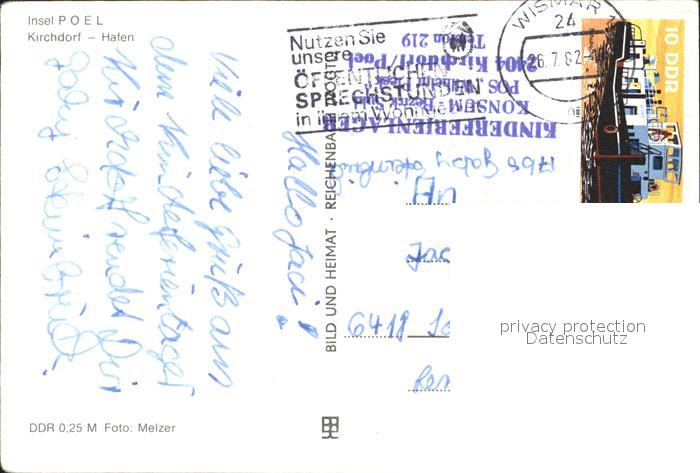 Insel POEL
Kirchdorf – Hafen
Hallo Jaci!
Viele liebe Grüße aus
dem Kinderferienlager
Kirchdorf sendet Dir
Gaby Steinbrück.
DDR 0,25 M Foto: Melzer
BILD UND HEIMAT · REICHENBA
Nutzen Sie
unsere
ÖFFENTLICHEN
SPRECHSTUNDEN
in Ihrem Wohn
WISMAR 1
24
26.7.82
10 DDR
KINDERFERIENLAGER
KONSUM
POS
2404 Kirchdorf/Poel
Telefon 219
Gaby
6418
privacy protection
Datenschutz